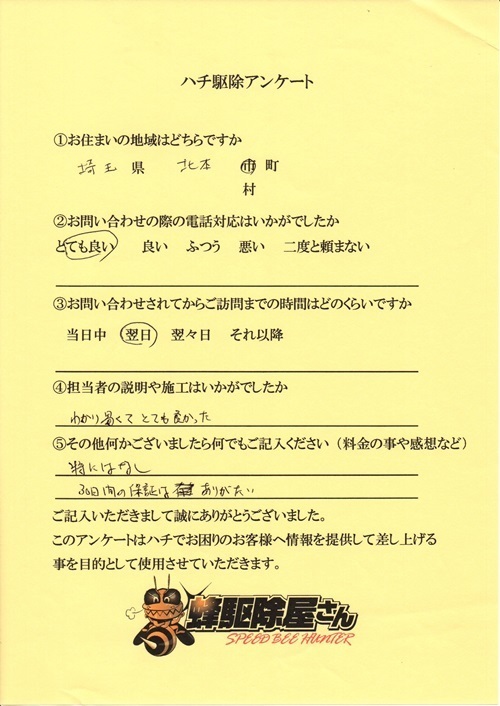 ハチ駆除アンケート
①お住まいの地域はどちらですか
埼玉 県 北本 市 町
村
②お問い合わせの際の電話対応はいかがでしたか
とても良い 良い ふつう 悪い 二度と頼まない
③お問い合わせされてからご訪問までの時間はどのくらいですか
当日中 翌日 翌々日 それ以降
④担当者の説明や施工はいかがでしたか
わかり易くてとても良かった
⑤その他何かございましたら何でもご記入ください（料金の事や感想など）
特にはなし
30日間の保証は ありがたい
ご記入いただきまして誠にありがとうございました。
このアンケートはハチでお困りのお客様へ情報を提供して差し上げる
事を目的として使用させていただきます。
蜂駆除屋さん
SPEED BEE HUNTER